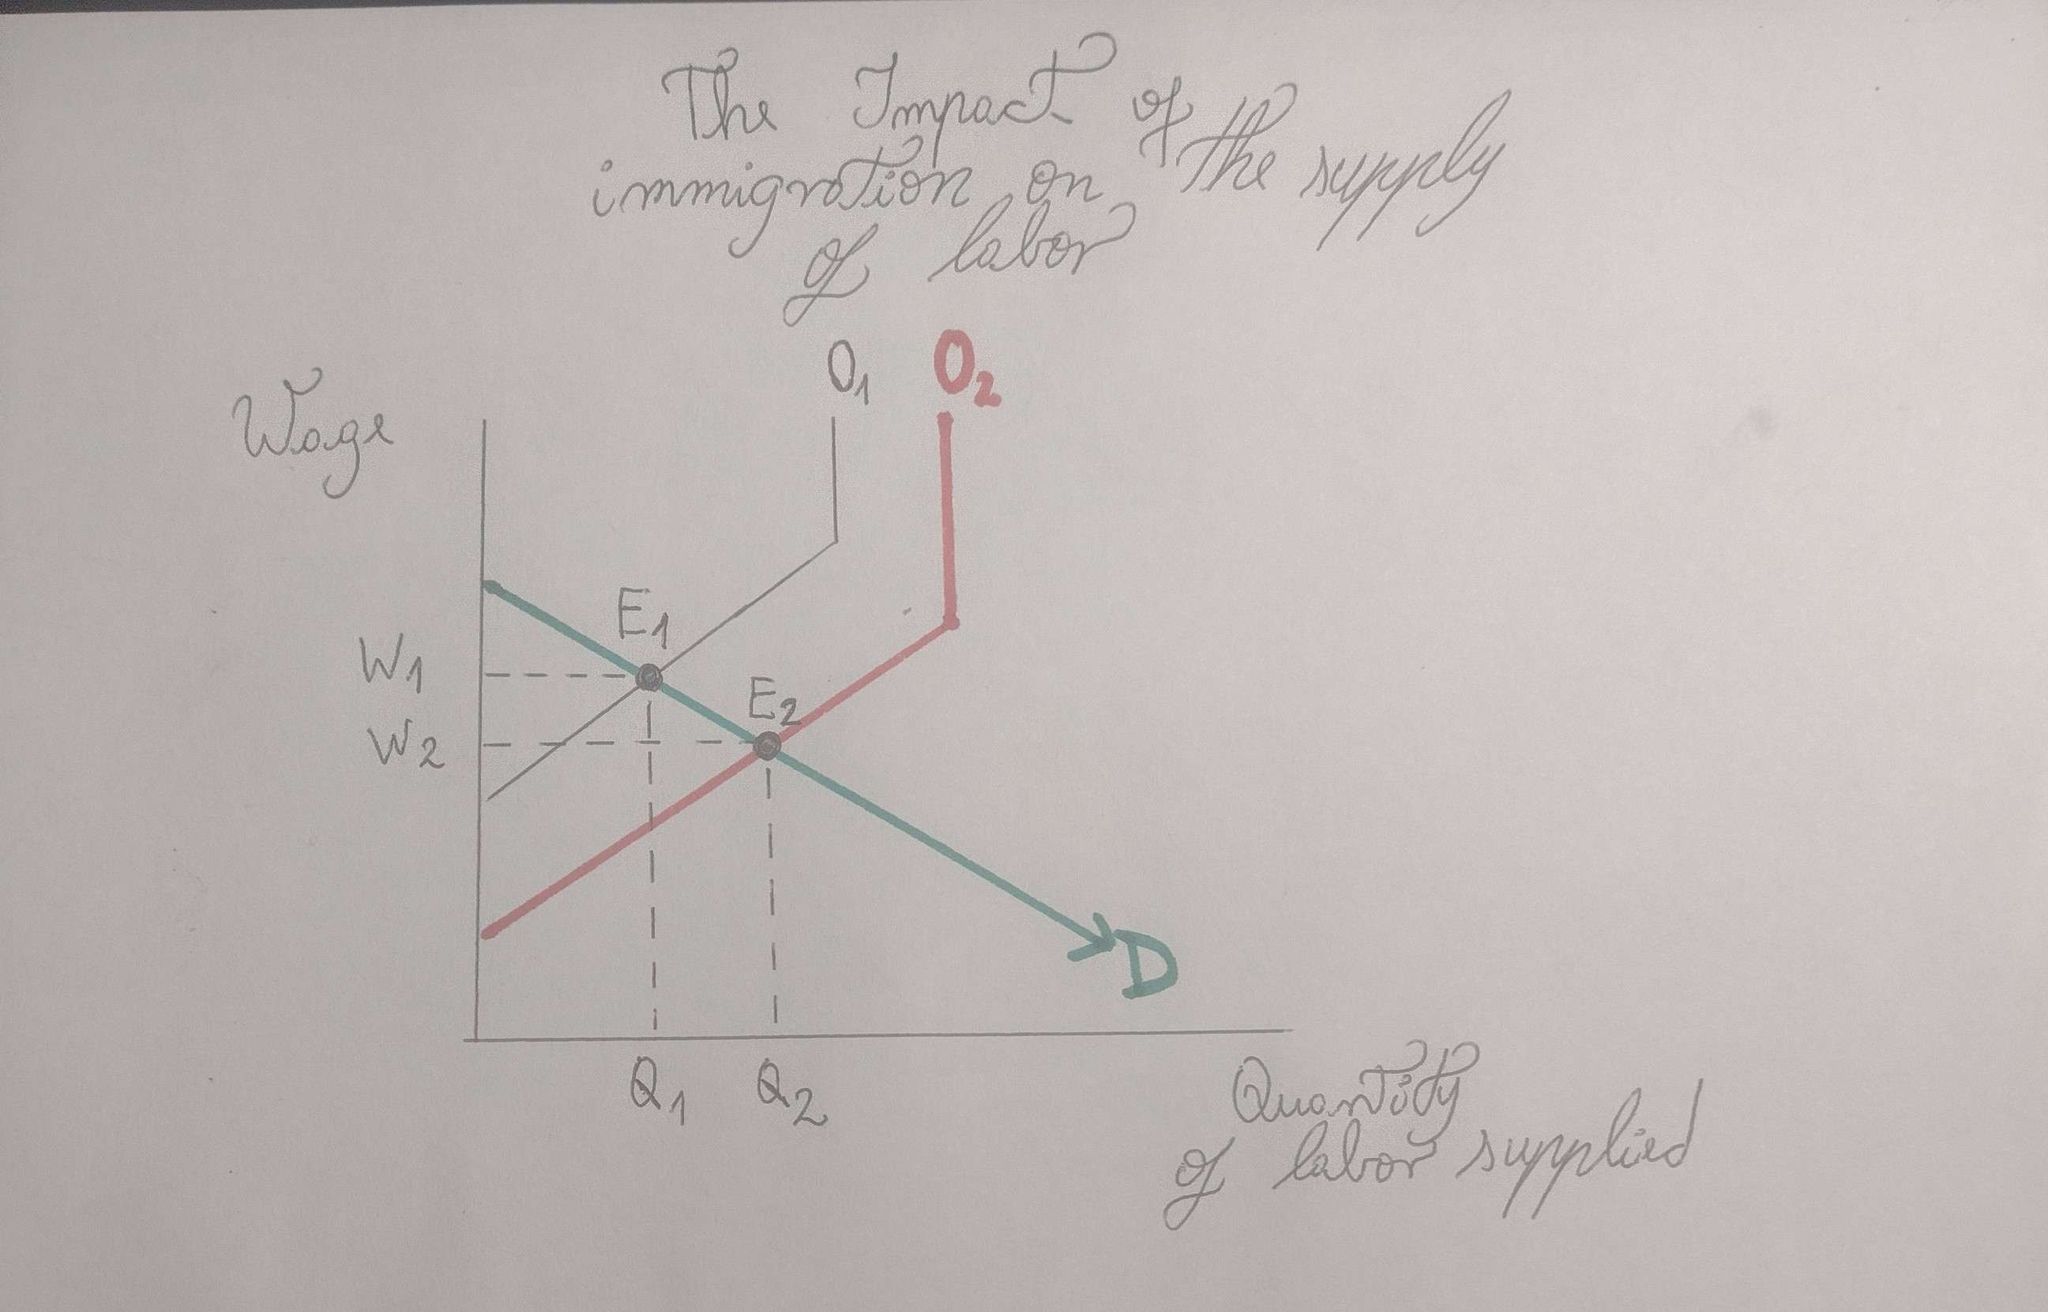 The Impact of
immigration on the supply
of labor
O1 O2
Wage
E1
W1
E2
W2
D
Q1 Q2
Quantity
of labor supplied